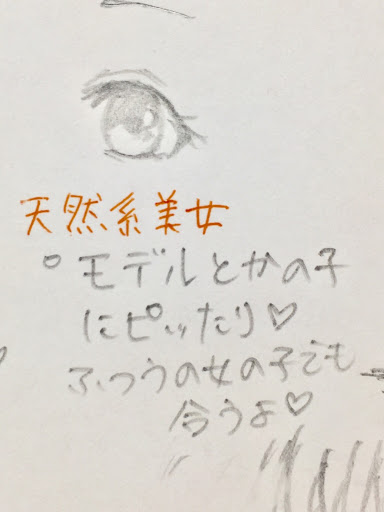 天然系美女
。モデルとかの子
にピッたり♡
ふつうの女の子でも
合うよ♡